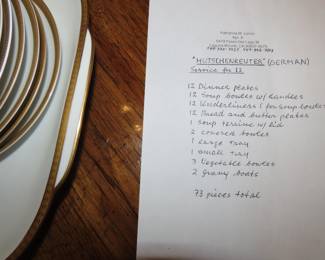 "HUTSCHENREUTER" (GERMAN)
Service for 12
12 Dinner plates
12 Soup bowls w/ handles
12 Underliners for soup bowls
12 Bread and butter plates
1 Soup terrine w/ lid
2 covered bowls
1 Large tray
1 small tray
3 Vegetable bowls
2 Gravy boats
73 pieces total